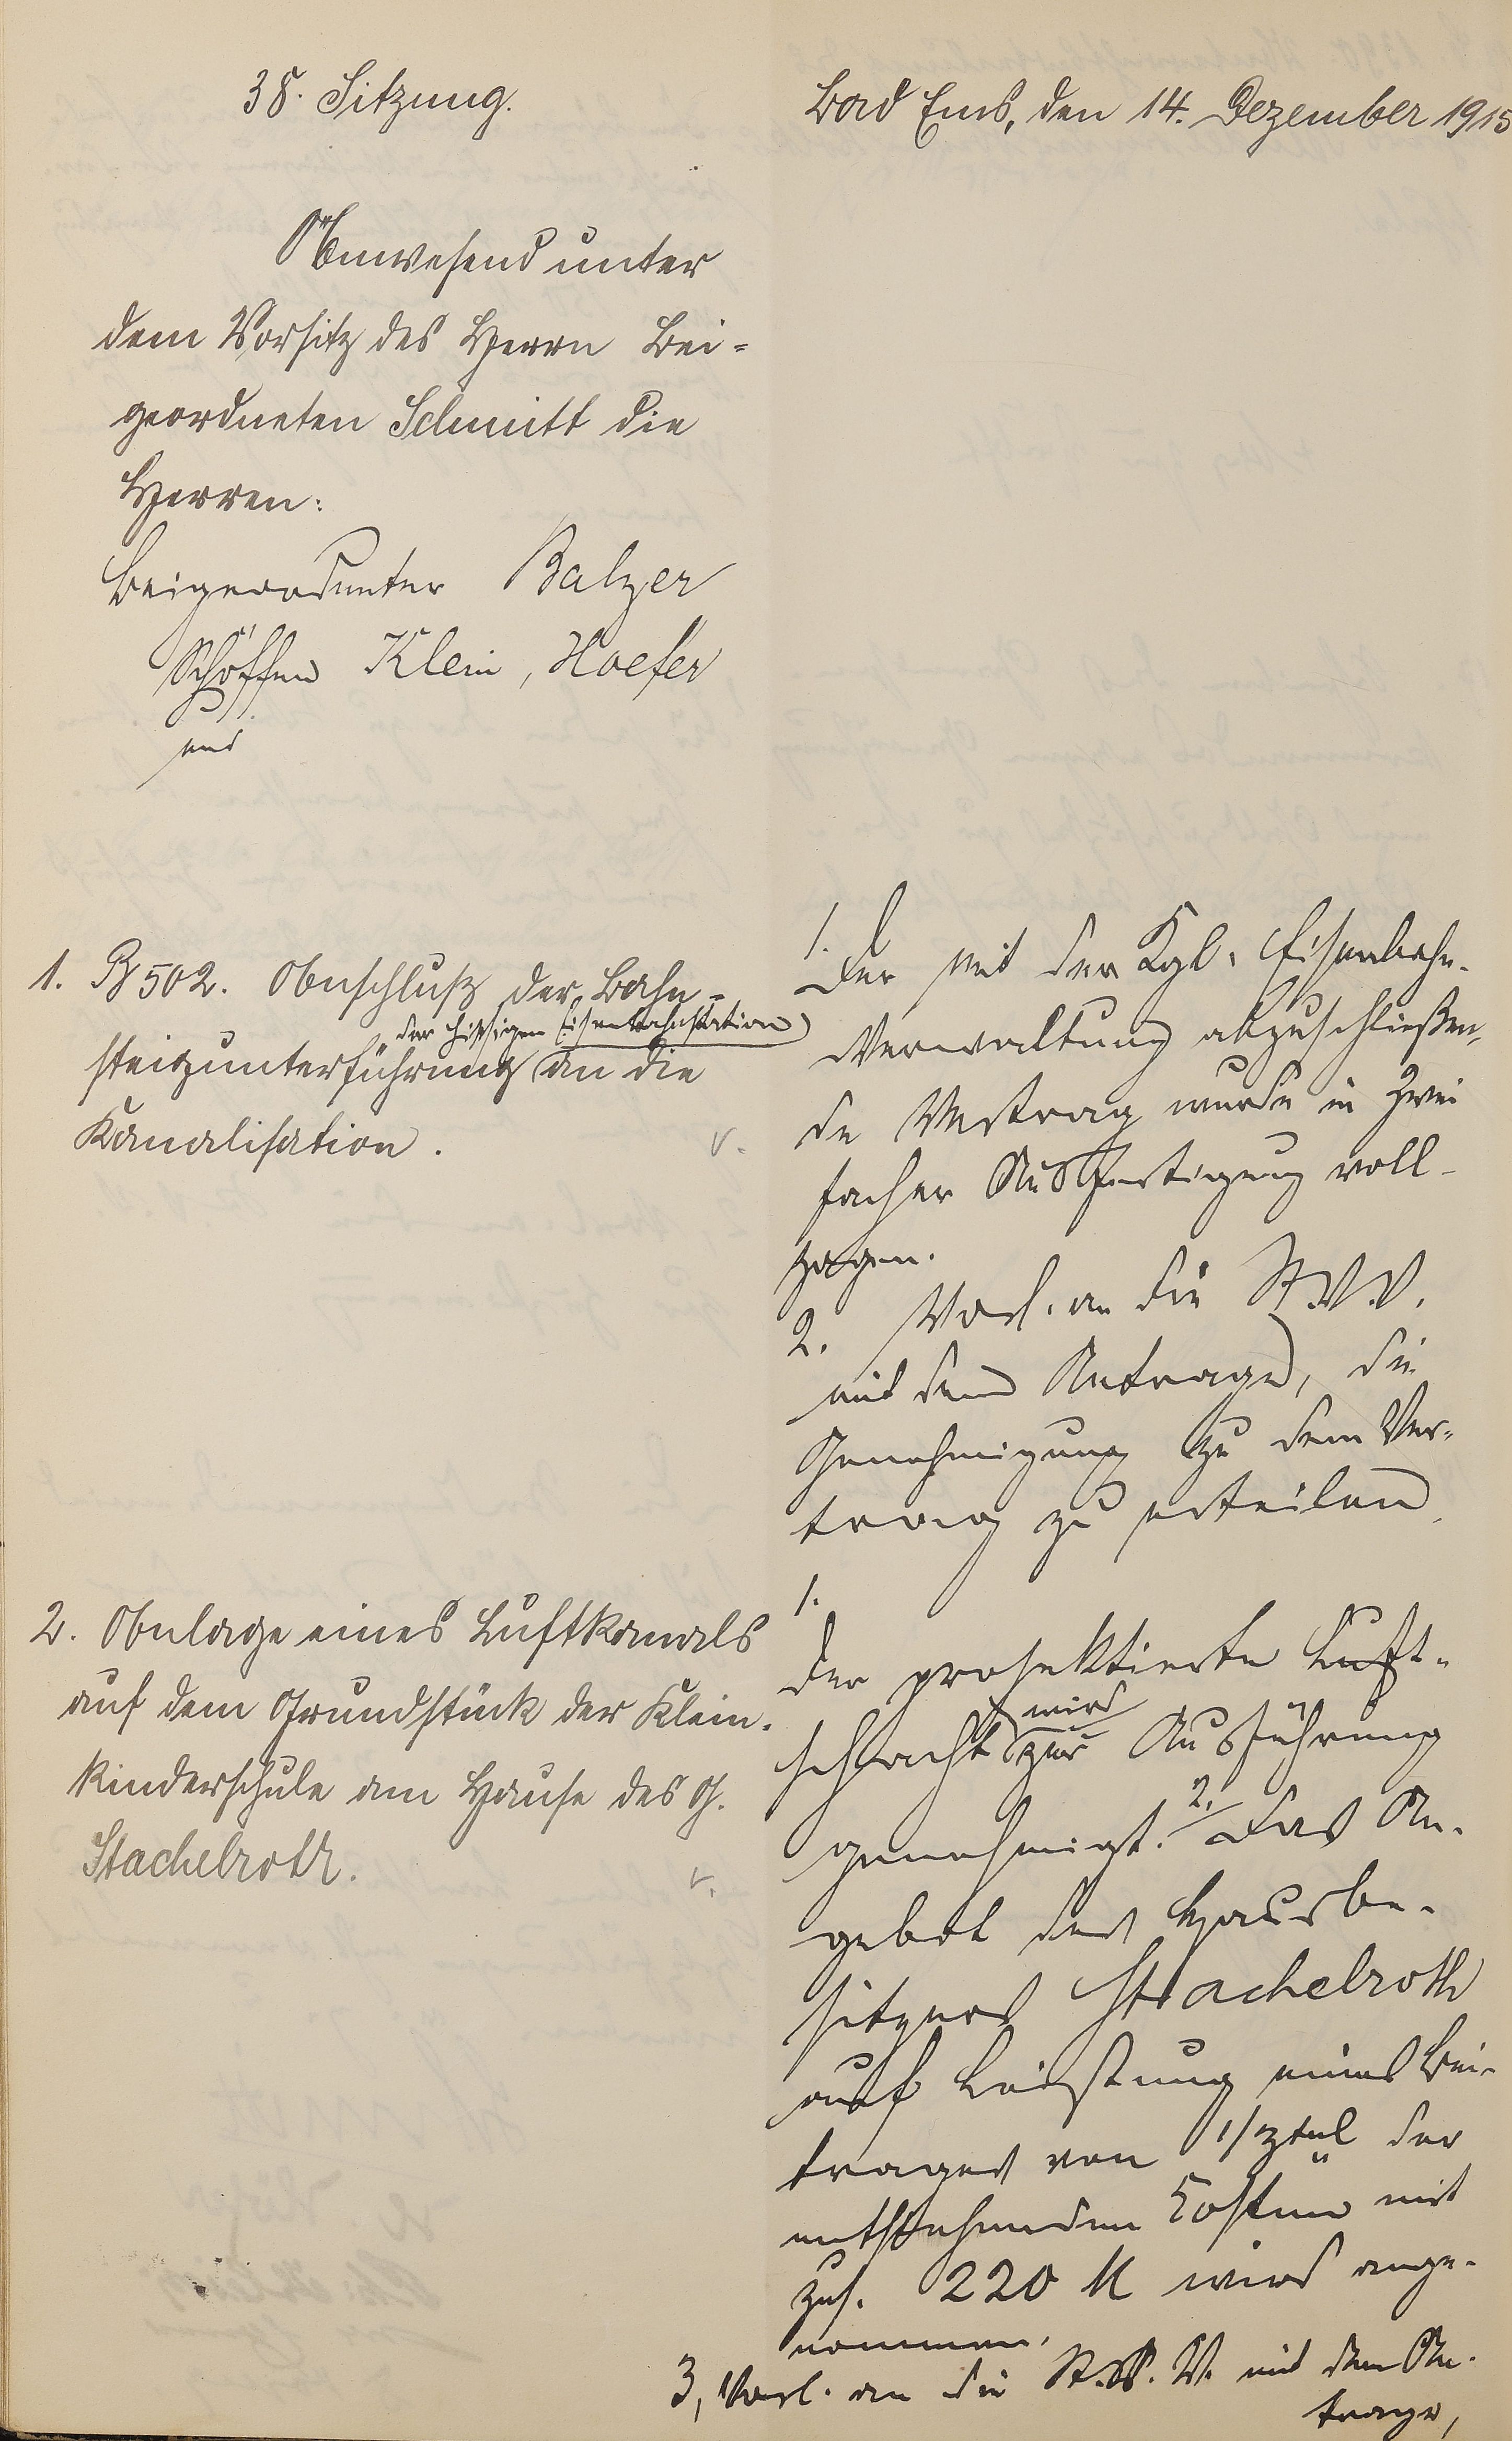 38. Sitzung.
Bad Ems, den 14. Dezember 1915
Anwesend unter
dem Vorsitz des Herrn Bei=
geordneten Schmitt die
Herren:
Beigeordneter Balzer
Schöffen Klein, Hoefer
und
1. B 502. Anschluß der Bahn=
der hiesigen Eisenbahnstation
steigunterführung an die
Kanalisation.
v.
1.
Der mit der Kgl. Eisenbahn-
Verwaltung abzuschließen-
de Vertrag wurde in zwei
facher Ausfertigung voll-
zogen.
2. Vorl. an die St.V.V.
mit dem Antrage, die
Genehmigung zu dem Ver-
trag zu erteilen.
2. Anlage eines Luftkanals
auf dem Grundstück der Klein-
kinderschule am Hause des G.
Stachelroth.
v.
1.
Der projektierte Luft-
schacht wird zur Ausführung
genehmigt. 2. Das An-
gebot des Hausbe-
sitzers Stachelroth
auf Leistung eines Bei-
trages von der
entstehenden Kosten mit
zus. 220 M wird ange-
nommen.
3, Vorl. an die St.V.V. mit dem An-
trage,